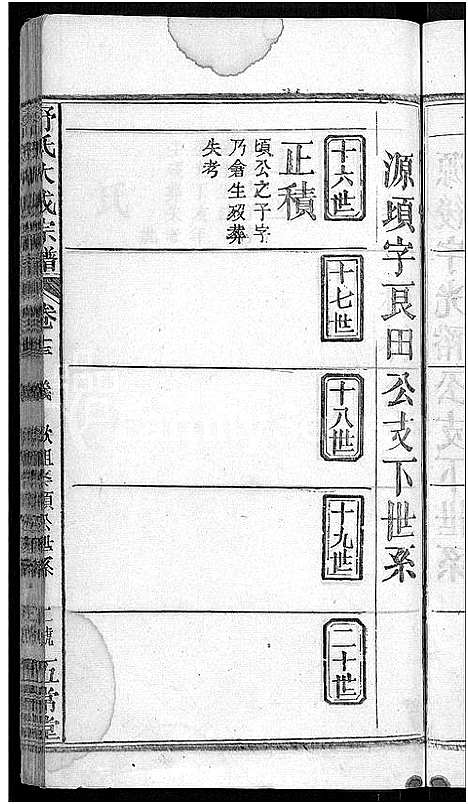 源頃字艮田公支下世系
十六世
正積
頃公之子字
乃會生殁葬
失考
十七世
十八世
十九世
二十世
舒氏大成宗譜
五常堂